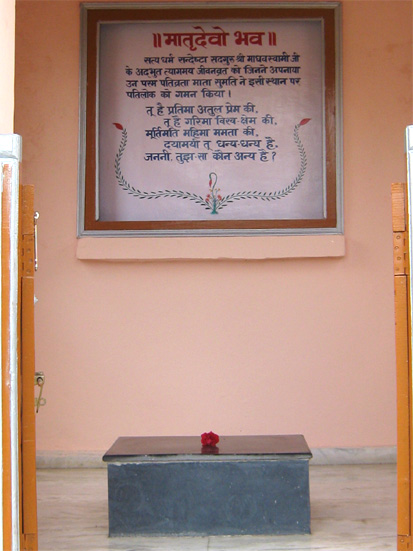 ॥ मातृदेवो भव ॥
सत्य धर्म सन्देष्टा सदगुरु श्री माधवस्वामी जी
के अदभुत त्यागमय जीवनव्रत को जिनने अपनाया
उन परम पतिव्रता माता सुमति ने इसी स्थान पर
पतिलोक को गमन किया।
तू है प्रतिमा अतुल प्रेम की,
तू है गरिमा विश्व-क्षेम की,
मूर्तिमति महिमा ममता की,
दयामयी तू धन्य-धन्य है,
जननी, तुझ-सा कौन अन्य है ?